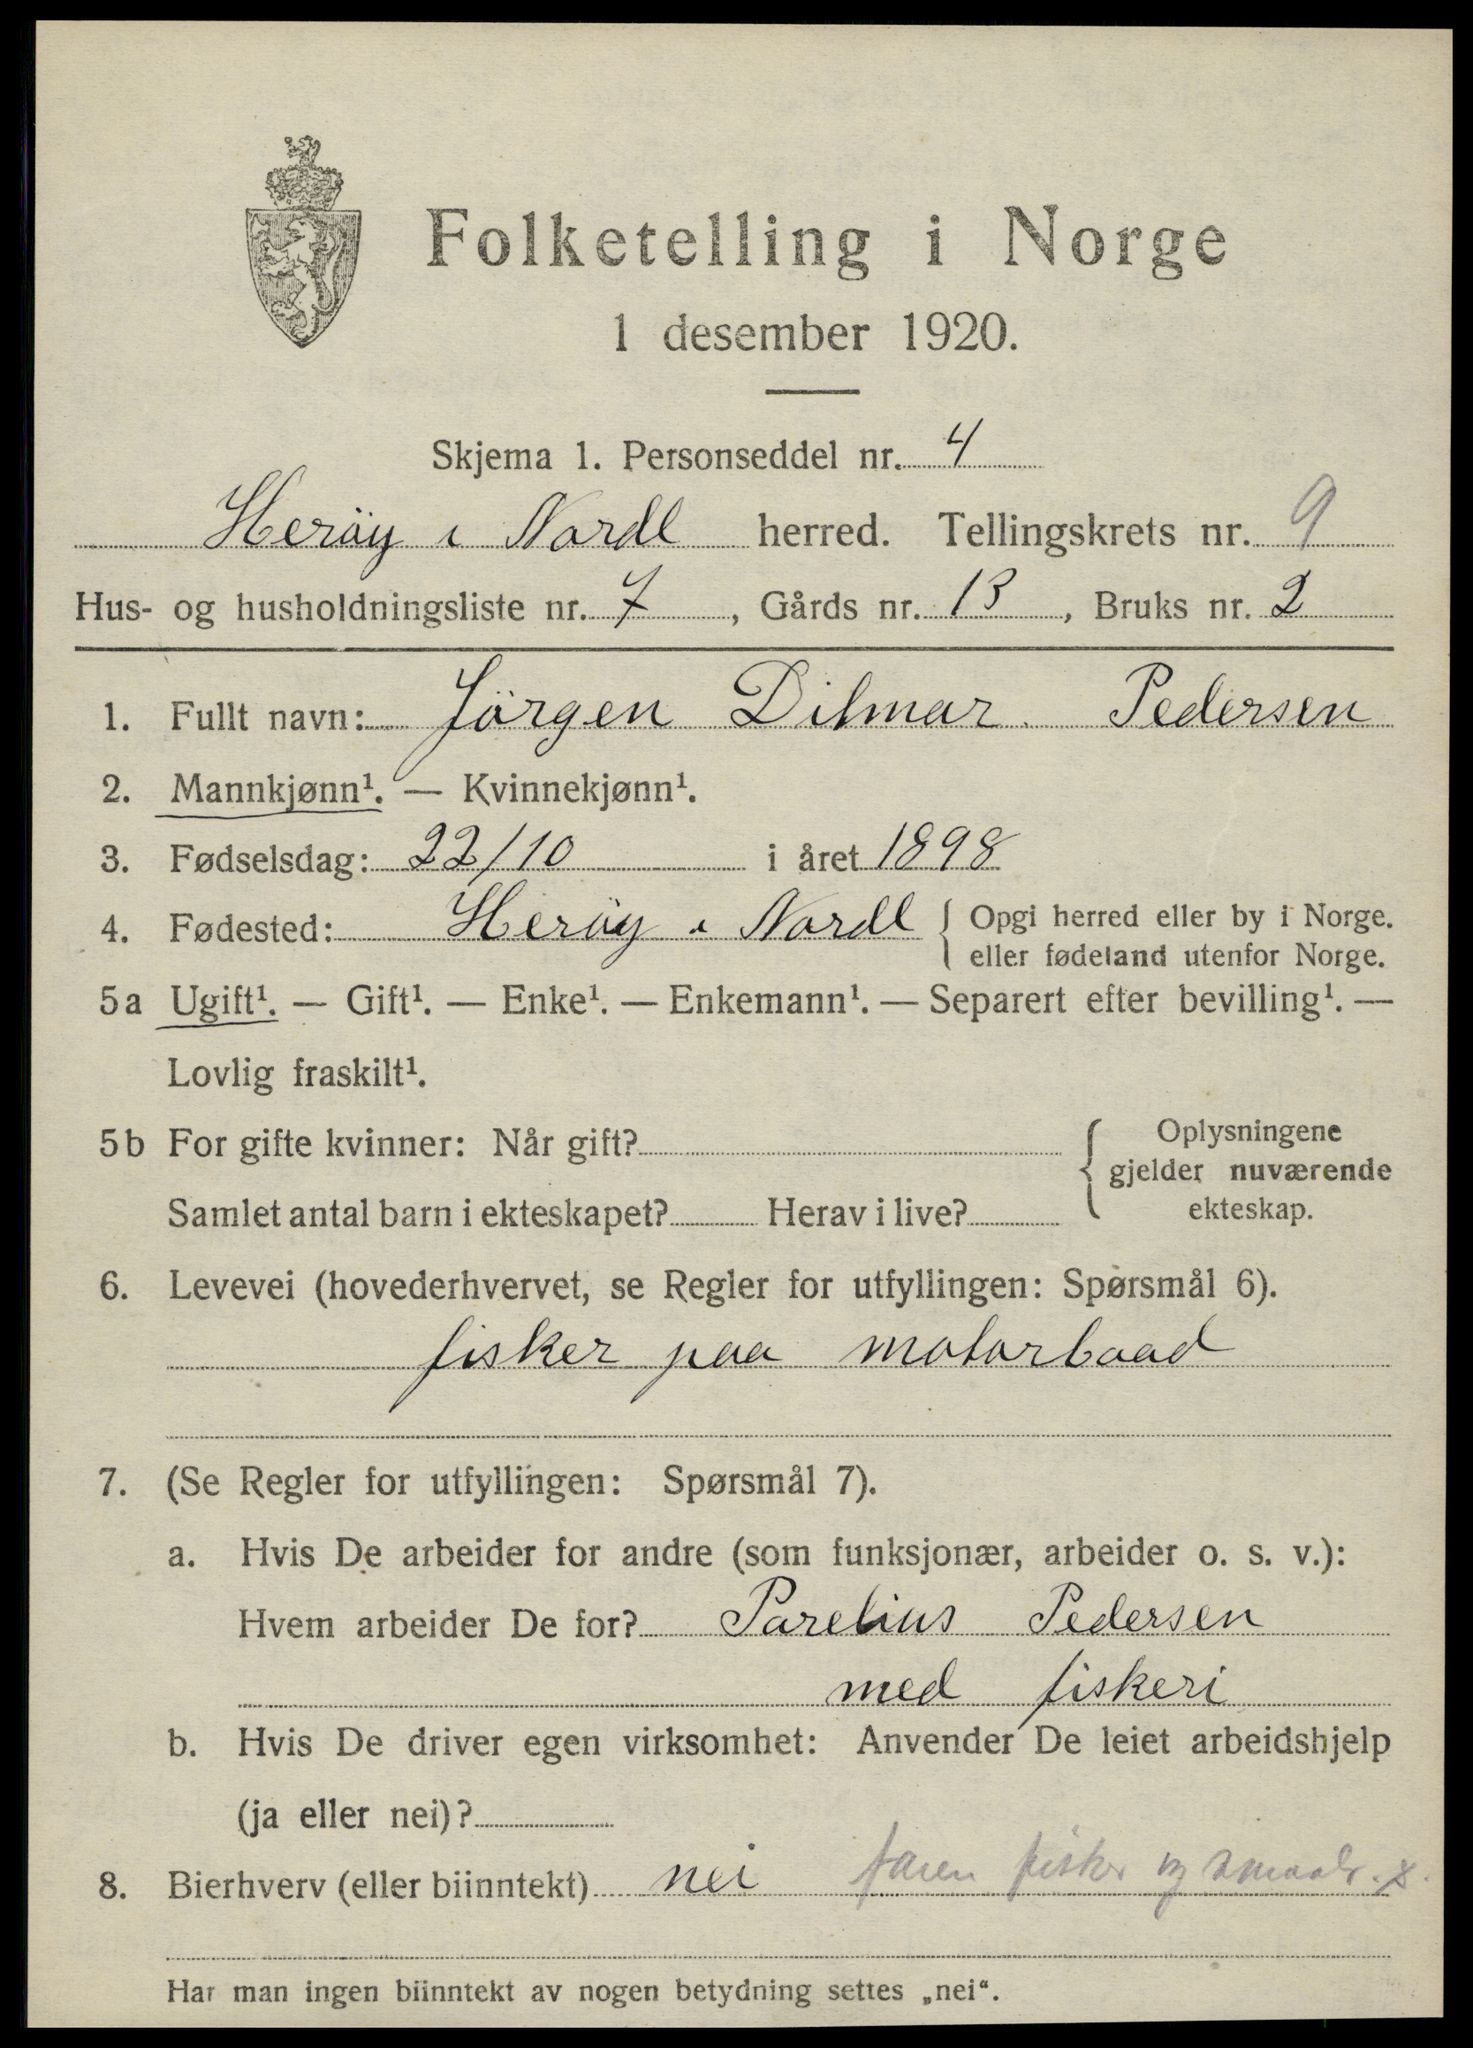 Folketelling i Norge
1 desember 1920.
Skjema 1. Personseddel nr. 4
Herøy i Nordl herred. Tellingskrets nr. 9
Hus- og husholdningsliste nr. 7, Gårds nr. 13, Bruks nr. 2
1. Fullt navn: Jörgen Dilmar Pedersen
2. Mannkjønn¹. — Kvinnekjønn¹.
3. Fødselsdag: 22/10 i året 1898
4. Fødested: Heröy i Nordl { Opgi herred eller by i Norge.
eller fødeland utenfor Norge.
5a Ugift¹. — Gift¹. — Enke¹. — Enkemann¹. — Separert efter bevilling¹. —
Lovlig fraskilt¹.
5b For gifte kvinner: Når gift? { Oplysningene
gjelder nuværende
Samlet antal barn i ekteskapet? Herav i live? ekteskap.
6. Levevei (hovederhvervet, se Regler for utfyllingen: Spørsmål 6).
fisker paa motorbaad
7. (Se Regler for utfyllingen: Spørsmål 7).
a. Hvis De arbeider for andre (som funksjonær, arbeider o. s. v.):
Hvem arbeider De for? Parelius Pedersen
med fiskeri
b. Hvis De driver egen virksomhet: Anvender De leiet arbeidshjelp
(ja eller nei)?
8. Bierhverv (eller biinntekt) nei faren fisker og
Har man ingen biinntekt av nogen betydning settes „nei“.